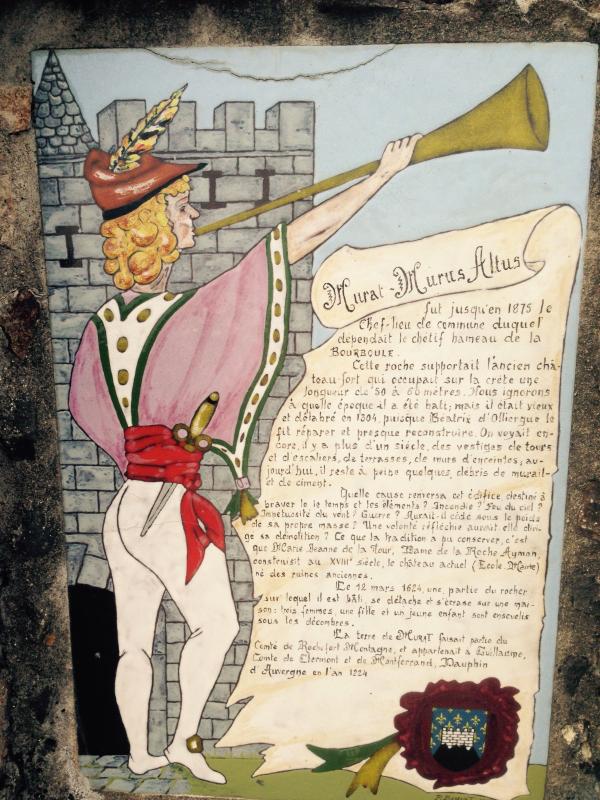 Murat - Murus Altus
fut jusqu'en 1875 le
Chef-lieu de commune duquel
dépendait le chétif hameau de la
BOURBOULE.
Cette roche supportait l'ancien châ-
teau fort qui occupait sur la crête une
longueur de 50 à 60 mètres. Nous ignorons
à quelle époque il a été bâti; mais il était vieux
et délabré en 1304, puisque Béatrix d'Olliergue le
fit réparer et presque reconstruire. On voyait en-
core, il y a plus d'un siècle, des vestiges de tours
et d'escaliers, de terrasses, de murs d'enceintes, au-
jourd'hui, il reste à peine quelques, débris de muraille
et de ciment.
Quelle cause renversa cet édifice destiné à
braver le le temps et les éléments? Incendie? Feu du ciel?
Impétuosité du vent? Guerre? Aurait-il cédé sous le poids
de sa propre masse? Une volonté réfléchie aurait elle diri-
gé sa démolition? Ce que la tradition a pu conserver, c'est
que Marie Jeanne de la Tour, Dame de la Roche Aymon,
construisit au XVIIIe siècle, le château actuel (Ecole, Mairie)
né des ruines anciennes.
Le 12 mars 1624, une, partie du rocher
sur lequel il est bâti, se détache et s'écrase sur une mai-
son: trois femmes, une fille et un jeune enfant sont ensevelis
sous les décombres.
La terre de MURAT faisait partie du
Comté de Rochefort Montagne, et appartenait à Guillaume,
Comte de Clermont et de Montferrand, Dauphin
d'Auvergne en l'an 1224